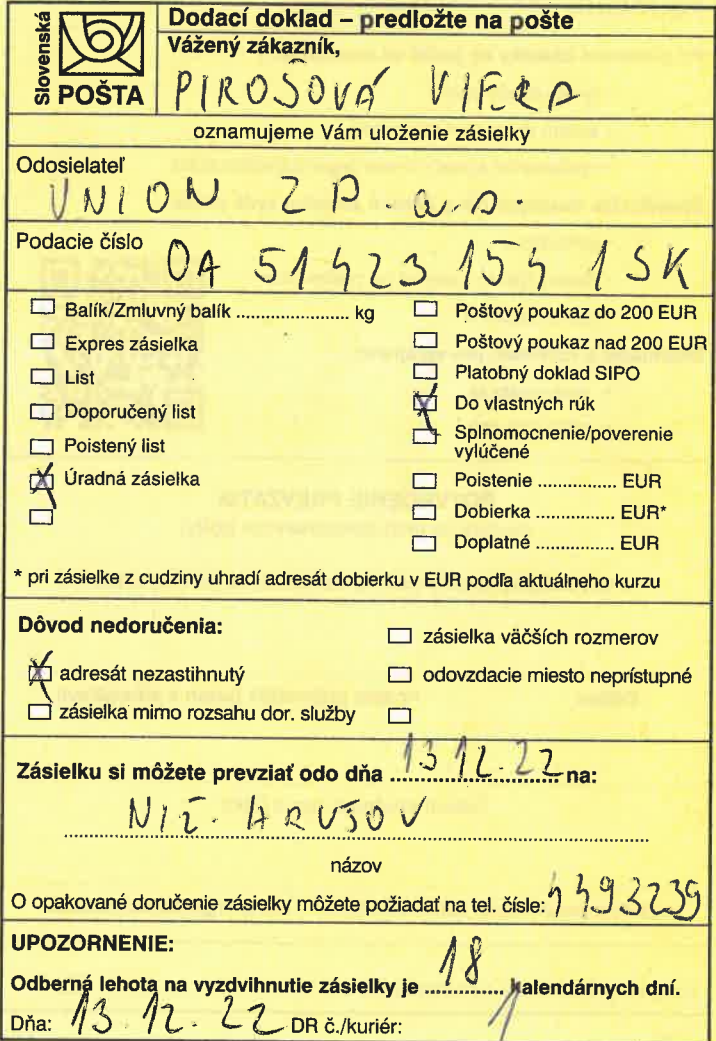 Slovenská
POŠTA
Dodací doklad – predložte na pošte
Vážený zákazník,
PIROŠOVÁ VIERA
oznamujeme Vám uloženie zásielky
Odosielateľ
UNION ZP. a.s.
Podacie číslo OA 51423 154 1SK
Balík/Zmluvný balík ...................... kg
Expres zásielka
List
Doporučený list
Poistený list
X Úradná zásielka
Poštový poukaz do 200 EUR
Poštový poukaz nad 200 EUR
Platobný doklad SIPO
X Do vlastných rúk
Splnomocnenie/poverenie
vylúčené
Poistenie ............... EUR
Dobierka ............... EUR*
Doplatné ............... EUR
* pri zásielke z cudziny uhradí adresát dobierku v EUR podľa aktuálneho kurzu
Dôvod nedoručenia:
zásielka väčších rozmerov
X adresát nezastihnutý
odovzdacie miesto neprístupné
zásielka mimo rozsahu dor. služby
Zásielku si môžete prevziať odo dňa 13 12. 22 na:
NIŽ. HRUŠOV
názov
O opakované doručenie zásielky môžete požiadať na tel. čísle: 4493239
UPOZORNENIE:
Odberná lehota na vyzdvihnutie zásielky je 18 kalendárnych dní.
Dňa: 13. 12. 22 DR č./kuriér: 1